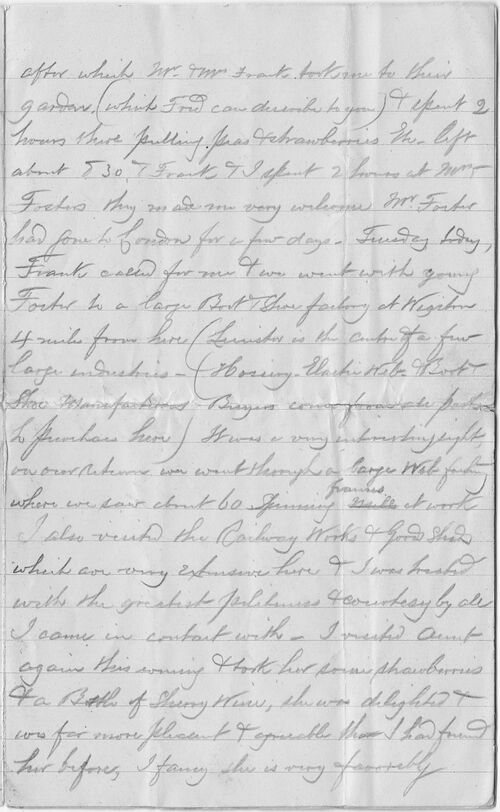 after which Mr. & Mrs Frank took me to their
garden, (which Fred can describe to you) & spent 2
hours there pulling peas & strawberries We left
about 8.30, Frank & I spent 2 hours at Mrs
Fosters they made me very welcome Mr Foster
had gone to London for a few days - Tuesday today,
Frank called for me & we went with young
Foster to a large Boot & Shoe factory at Wigston
4 miles from here (Leicester is the centre of a few
large industries - (Hosiery - Elastic Web & Boot
Shoe Manufacturers - Buyers come from all parts
to purchase here) It was a very interesting sight
on our return we went through a large Web factory
where we saw about 60 Spinning frames at work
I also visited the Railway Works & Good Sheds
which are very extensive here & I was treated
with the greatest politeness & courtesy by all
I came in contact with - I visited Aunt
again this evening & took her some strawberries
& a Bottle of Sherry Wine, she was delighted &
was far more pleasant & agreeable than I had found
her before, I fancy she is very